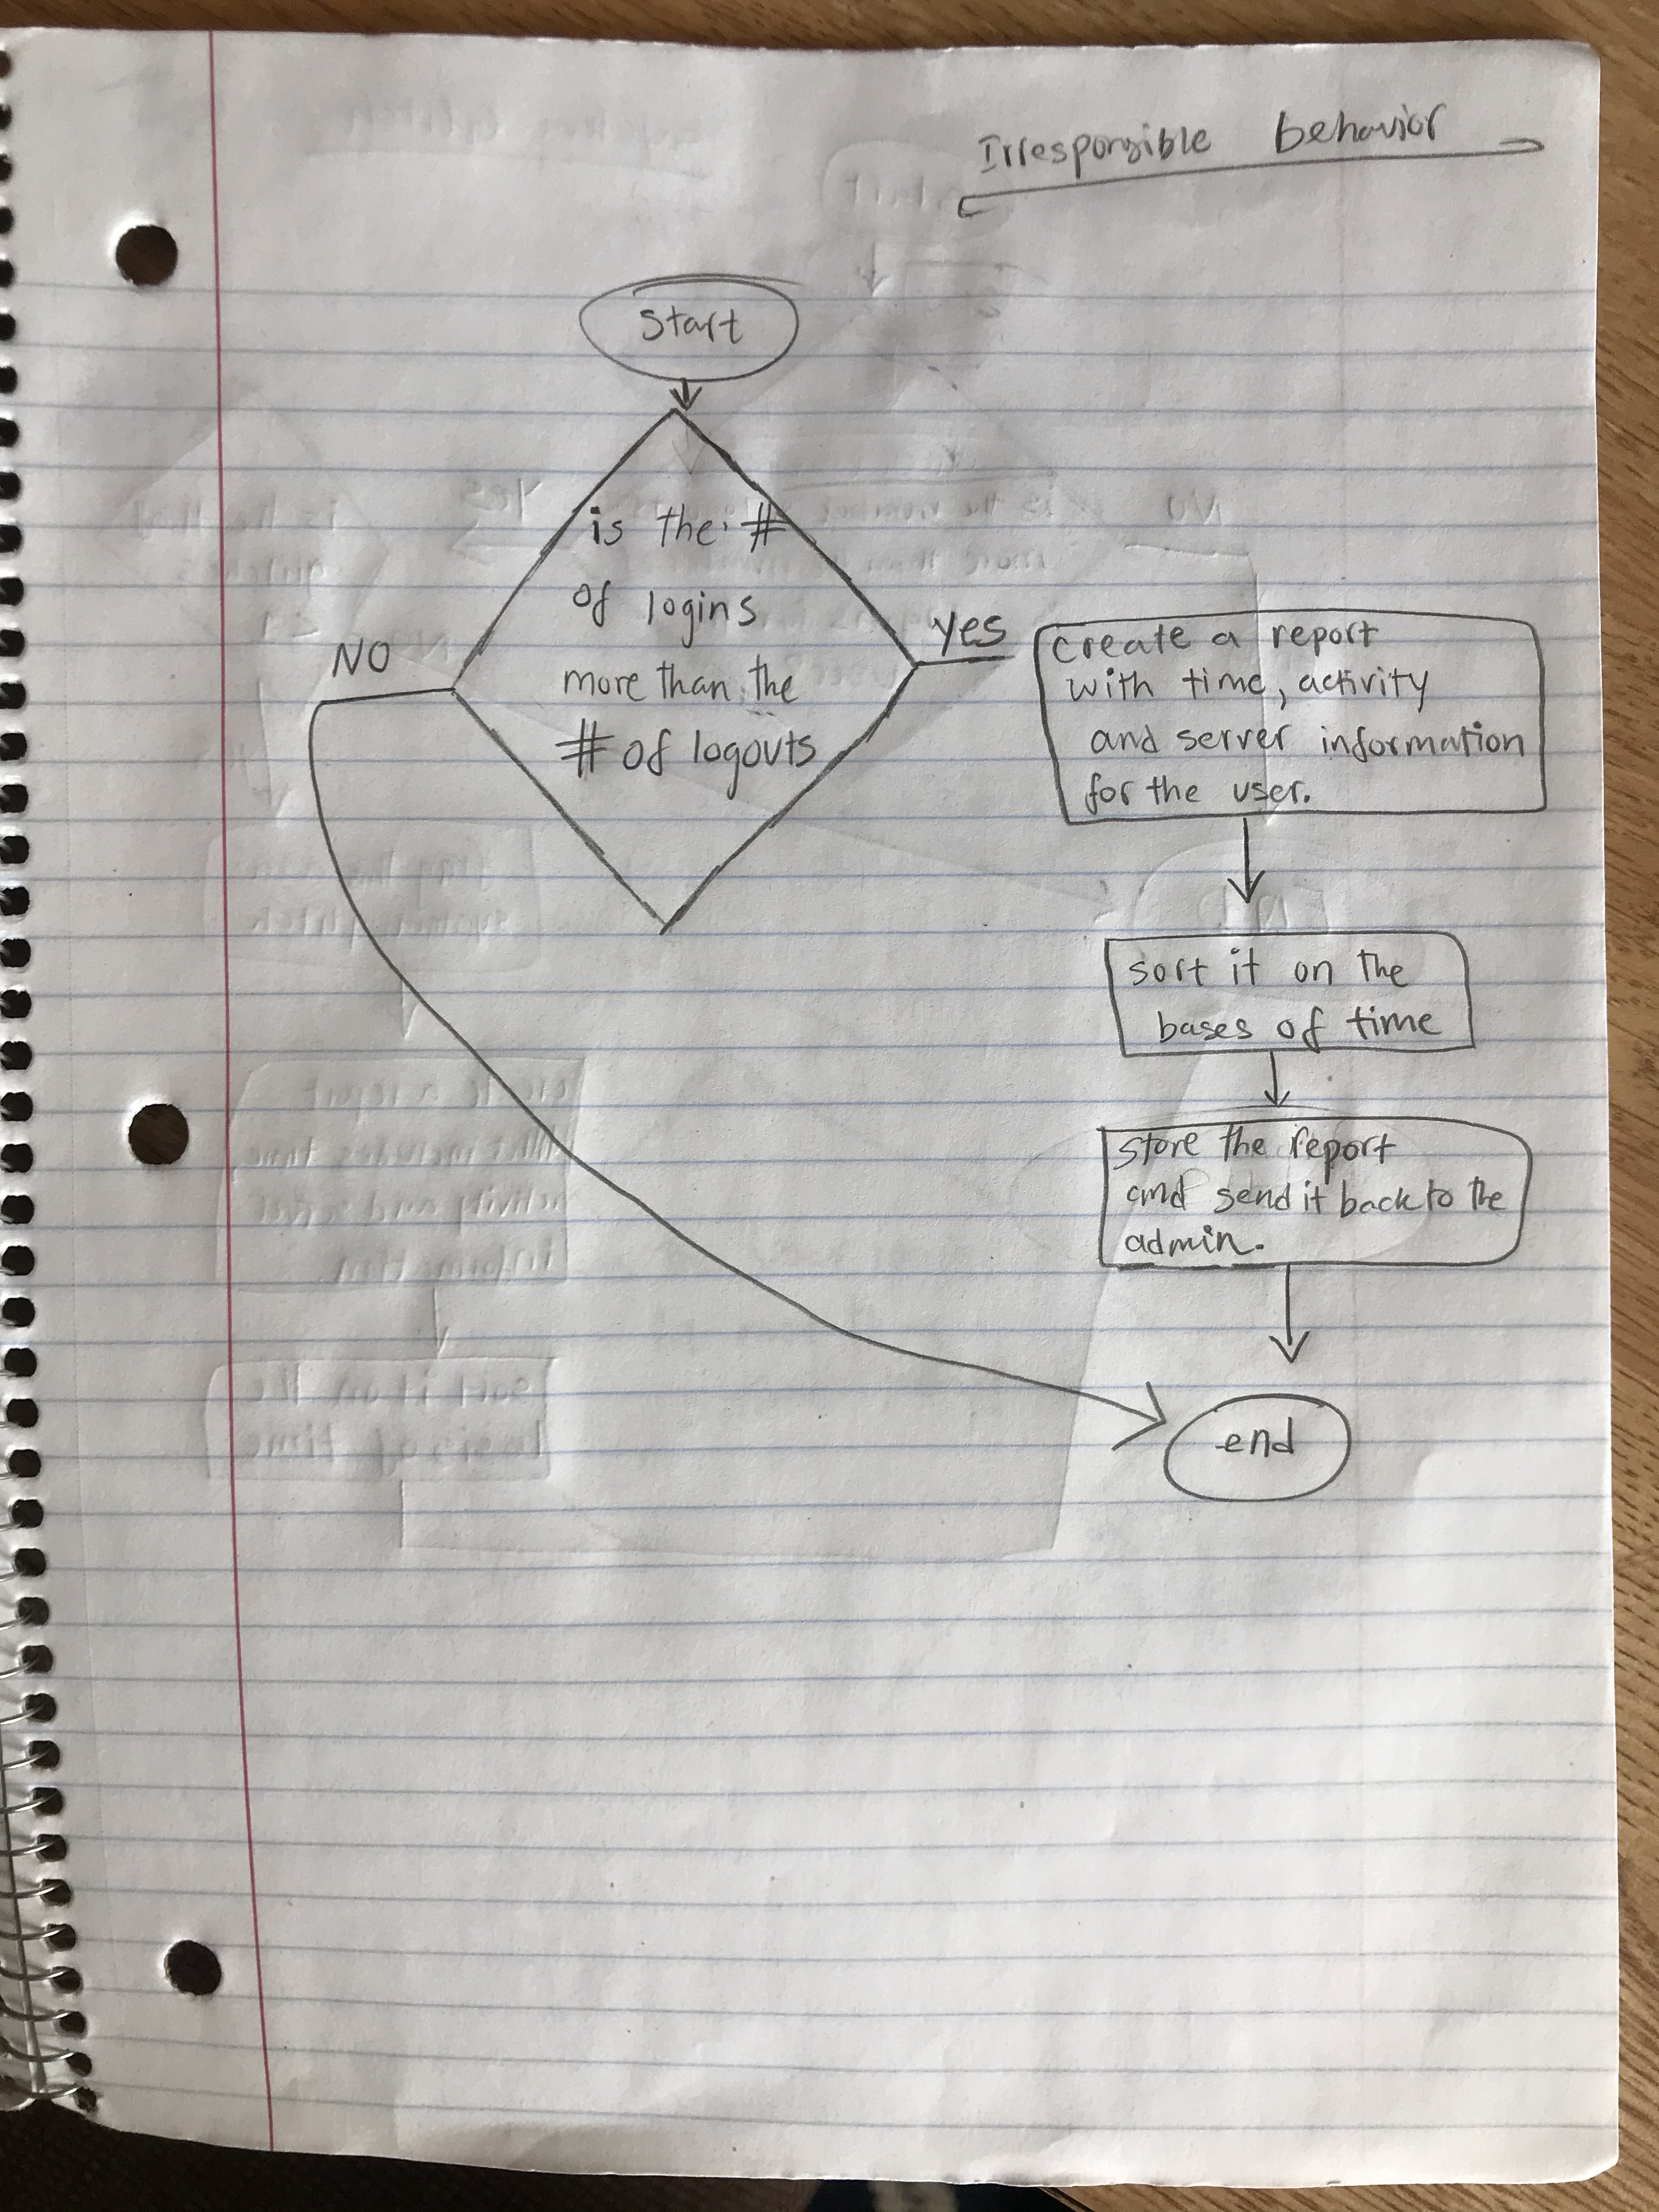 Irresponsible behavior
Start
is the #
of logins
more than the
# of logouts
NO
yes
create a report
with time, activity
and server information
for the user.
sort it on the
bases of time
store the report
and send it back to the
admin.
end